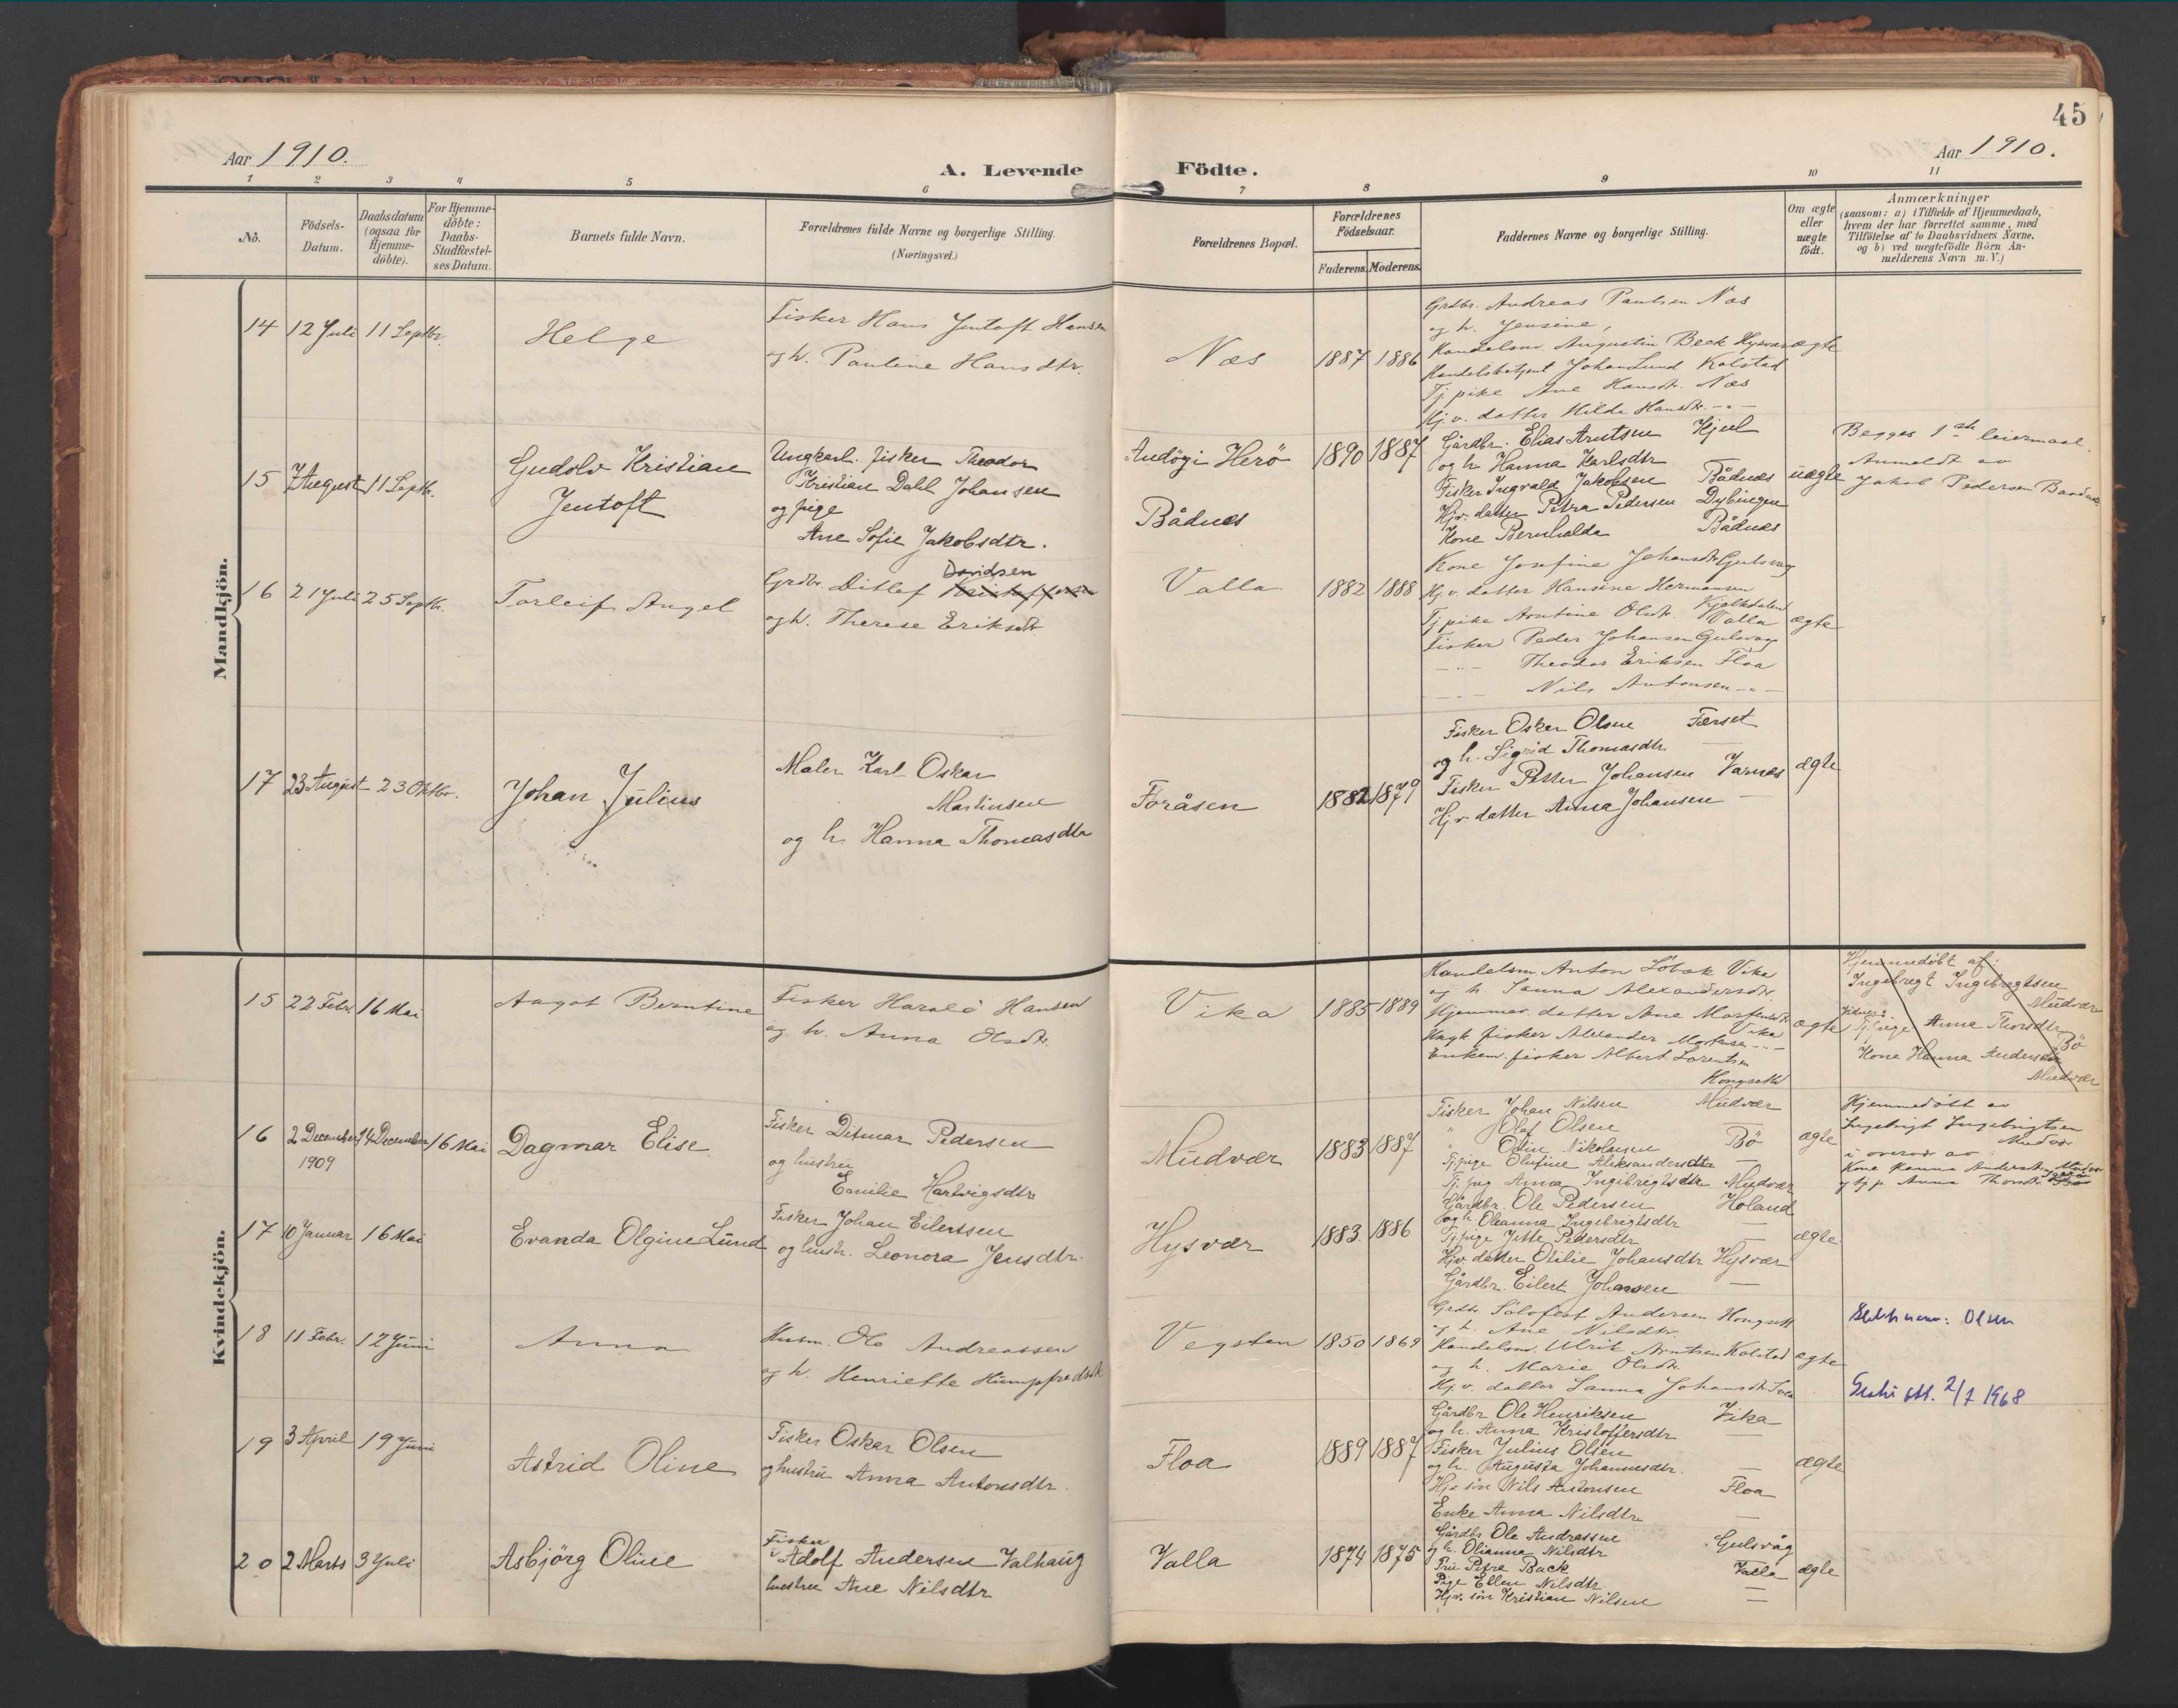 45
Aar 1910.
A. Levende Födte.
Aar 1910.
1 2 3 4 5 6 7 8 9 10 11
No.
Födsels-Datum.
Daabsdatum (ogsaa for Hjemme-döbte).
For Hjemme-döbte: Daabs-Stadfæstel-ses Datum.
Barnets fulde Navn.
Forældrenes fulde Navne og borgerlige Stilling.
(Næringsvei.)
Forældrenes Bopæl.
Forældrenes Födselsaar.
Faderens. Moderens.
Faddernes Navne og borgerlige Stilling.
Om ægte eller uægte födt.
Anmærkninger
(saasom: a) i Tilfælde af Hjemmedaab,
hvem der har forrettet samme, med
Tilföielse af to Daabsvidners Navne,
og b) ved uægtefödte Börn An-
melderens Navn m. V.)
Mandkjön.
14 12 Juli 11 Septbr. Helge
Fisker Hans Jentoft Hansen
og h. Pauline Hansdtr.
Næs 1887 1886
Grdbr. Andreas Paulsen Næs
og h. Jensine,
Handelsm. Augustin Beck Hysvær
Handelsbetjent Johan Lund Kolstad
Tj. pike Ane Hansdtr. Næs
Hj. v. datter Hilda Hansdtr. -"-
ægte
15 7 August 11 Septbr. Gudolv Kristian
Jentoft
Ungkarl. fisker Theodor
Kristian Dahl Johansen
og pige
Ane Sofie Jakobsdtr.
Andögi Herö
Bådnes
1890 1887
Gårdbr. Elias Arntsen Hjul
og h. Hanna Karlsdtr
Fisker Ingvald Jakobsen Bådnæs
Hjv. datter Petra Pedersen Dybingen
Kone Bernhalda Bådnæs
uægte
Begges 1ste leiermaal.
Anmeldt av
Jakob Pedersen Baadnæs
16 21 Juli 25 Septbr. Torleif Angel
Grdbr. Ditlef Kristoffersen Davidsen
og h. Therese Eriksdtr
Valla 1882 1888
Kone Josefine Johansdtr Gulsvag
Hj. v. datter Hansine Hermansen
Kjelkdalen
Tj. pike Arntine Olsdtr. Valla
Fisker Peder Johansen Gulsvag
-"- Theodor Eriksen Floa
-"- Nils Antonsen -"-
ægte
17 23 August 23 Oktbr. Johan Julius
Maler Karl Oskar
Martinsen
og h. Hanna Thomasdtr
Foråsen 1882 1879
Fisker Oskar Olsen Færset
og h. Sigrid Thomasdtr. —
Fisker Petter Johansen Varnæs
Hjv. datter Anna Johansen —
ægte
Kvindekjön.
15 22 Febr. 16 Mai Aagot Berntine
Fisker Harald Hansen
og h. Anna Olsdtr.
Vika 1885 1889
Handelsm. Anton Löbak Vika
og h. Sanna Alexandersdtr.
Hjemmev. datter Ane Mortensdtr
Vika
Ungk. fisker Alexander Mortensen -"-
Enkem. fisker Albert Lorentsen
Hongseth
ægte
Hjemmedöbt af:
Ingebregt Ingebregtsen
Mudvær
Vidner:
Tj. pige Anna Thorsdtr
Bö
Kone Hanna Andersen
Mudvær
16 2 December 1909 14 December 16 Mai Dagmar Elise
Fisker Ditmar Pedersen
og hustru
Emilie Hartvigsdtr
Mudvær 1883 1887
Fisker Johan Nilsen Mudvær
" Olaf Olsen —
" Odin Nikolaisen Bö
Tj. pige Olufine Aleksandersdtr —
Tj. pig Anna Ingebregtsdtr Mudvær
ægte
Hjemmedöbt av
Ingebrigt Ingebrigtsen
Mudvær
i overvær av
Kone Hanna Andersen Mudvær
og tj. p. Anna Thorsdtr
17 10 Januar 16 Mai Evanda Olgine Lund
Fisker Johan Eilertsen
og hustr. Leonora Jensdtr.
Hysvær 1883. 1886
Gårdbr. Ole Pedersen Holand
og h. Oleanna Ingebrigtsdtr —
Tj. pige Jette Pedersdtr —
Hjv. datter Otilie Johansdtr Hysvær
Gårdbr. Eilert Johansen —
ægte
18 11 Febr. 12 Juni Anna
Husm. Ole Andreassen
og h. Henriette Humpfredsdtr.
Vegsten 1850 1869
Grdbr. Sölvfest Andersen Hongseth
og h. Ane Nilsdtr.
Handelsm. Ulrik Arntsen Kolstad
og h. Marie Olsdtr.
Hj. v. datter Sanna Johansdtr
ægte
Slektsnavn: Olsen
2/7 1968
19 3 April 19 Juni Astrid Oline
Fisker Oskar Olsen
og hustru Anna Antonsdtr.
Floa 1889 1887
Gårdbr Ole Henriksen Vika
og h. Anna Kristoffersdtr —
Fisker Julius Olsen
og h. Augusta Johannesdtr. —
Hjv. sön Nils Antonsen Floa
Enke Anna Nilsdtr —
ægte
20 2 Marts 3 Juli Asbjörg Oline
Fisker
Adolf Andersen Valhaug
hustru Ane Nilsdtr
Valla 1874 1875
Gårdbr Ole Andreassen Gulsvåg
og h. Olianna Nilsdtr —
Fru Petra Back Valla
Pige Ellen Nilsdtr —
Hjv. sön Kristian Nilsen —
ægte